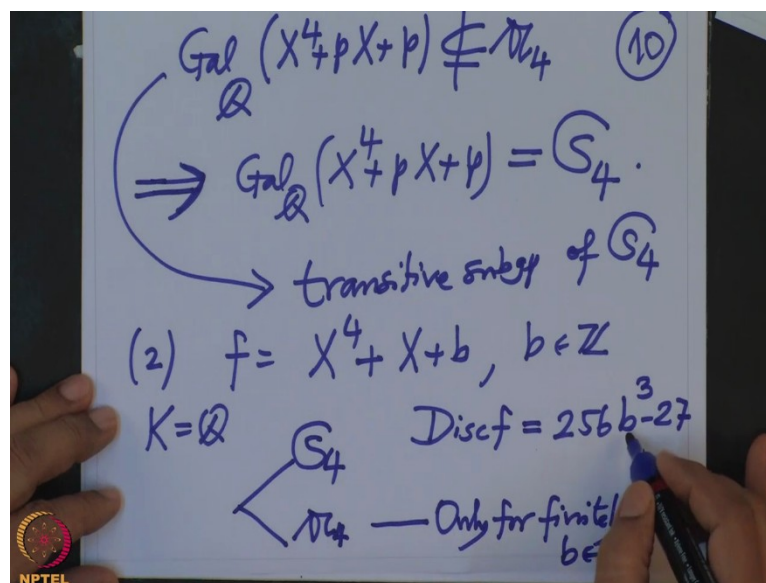 Gal_Q (X⁴+pX+p) ⊄ 𝔄₄ ⑩
⟹ Gal_Q (X⁴+pX+p) = 𝔖₄.
transitive subgp of 𝔖₄
(2) f = X⁴+X+b, b∈ℤ
K=Q 𝔖₄ Disc f = 256b³-27
𝔄₄ — Only for
b∈
NPTEL